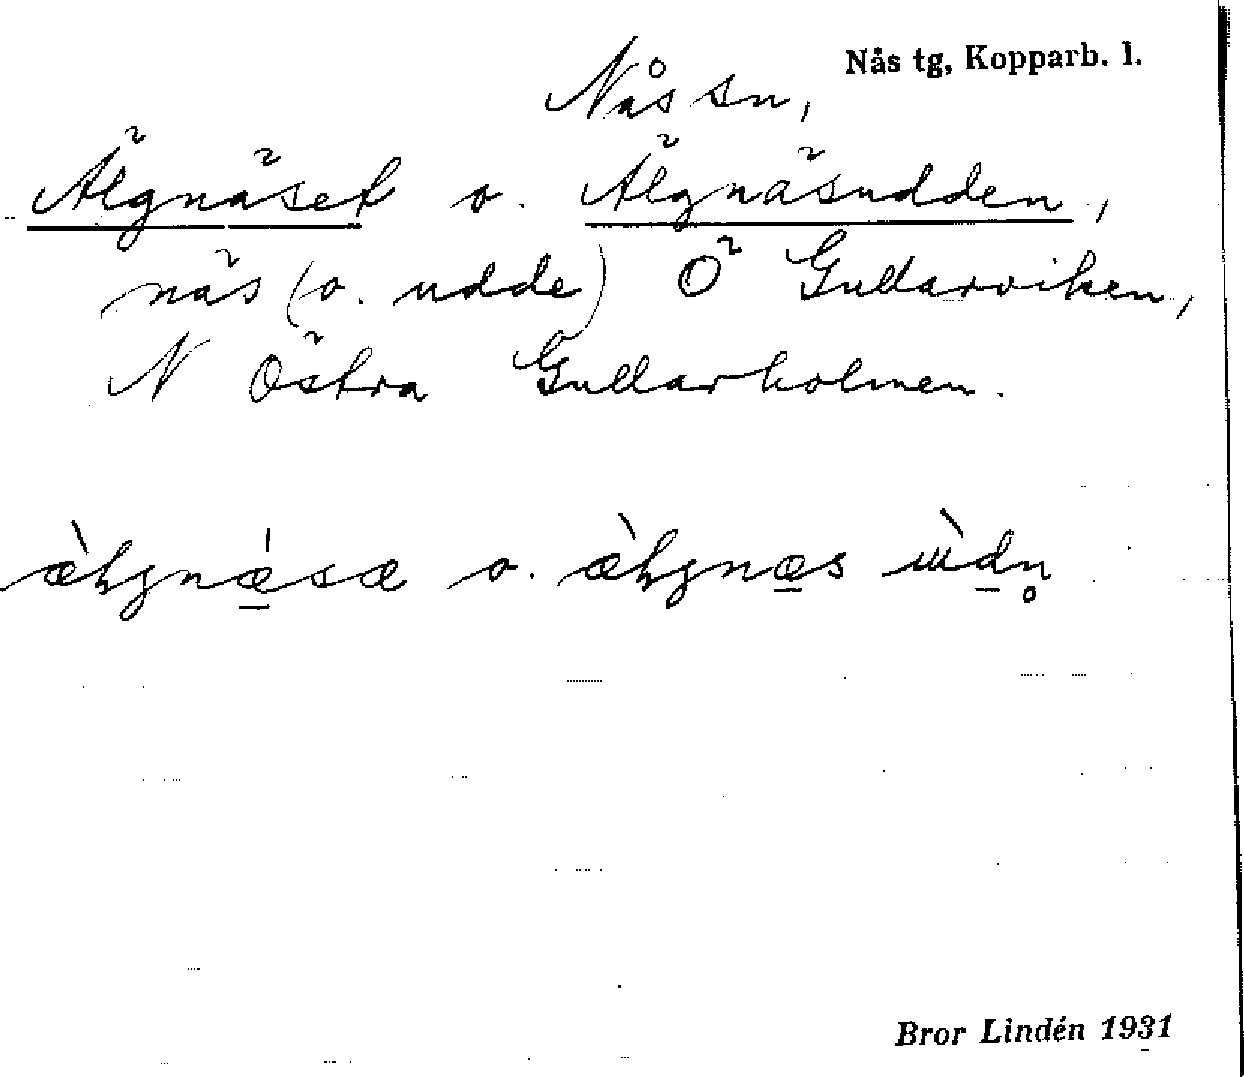 Nås tg, Kopparb. l.
Nås sn,
Älgnäset o. Älgnäsudden,
näs (o. udde) Ö Gullarviken,
N Östra Gullarholmen.
o.
Bror Lindén 1931